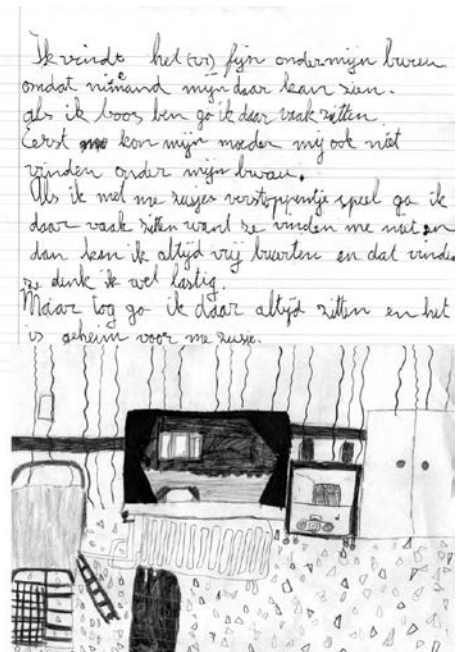 Ik vindt het (vr) fijn ondermijn buren
omdat niemand mijn daar kan zien.
als ik boos ben ga ik daar vaak zitten.
Eerst kon mijn moeder mij ook niet
vinden onder mijn bureau.
Als ik met me zusjes verstoppentje speel ga ik
daar vaak zitten want ze vinden me niet en
dan kan ik altijd vrij buurten en dat vinden
ze denk ik wel lastig.
Maar tog ga ik daar altijd zitten en het
is geheim voor me zusje.